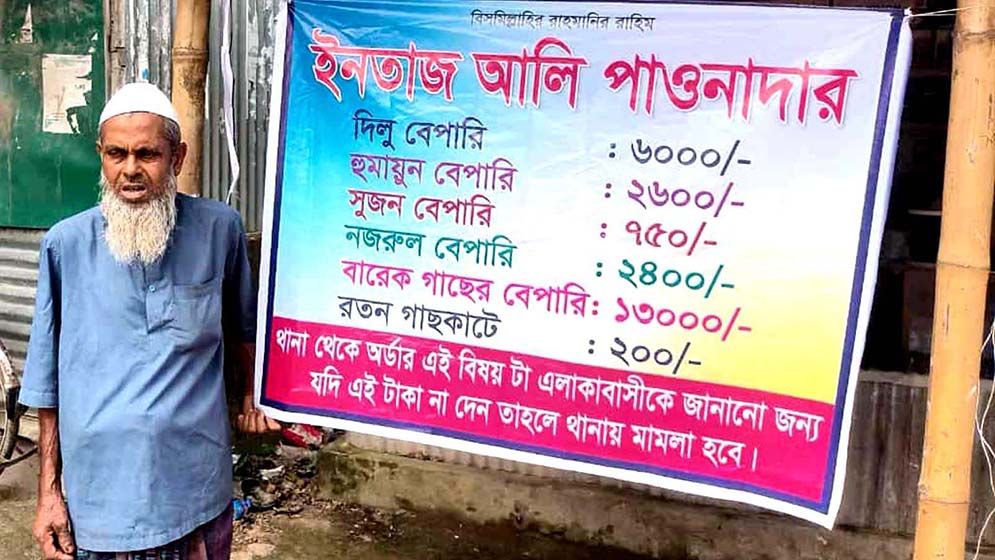 বিসমিল্লাহির রাহমানির রাহিম
ইনতাজ আলি পাওনাদার
দিলু বেপারি : ৬০০০/-
হুমায়ুন বেপারি : ২৬০০/-
সুজন বেপারি : ৭৫০/-
নজরুল বেপারি : ২৪০০/-
বারেক গাছের বেপারি : ১৩০০০/-
রতন গাছকাটে : ২০০/-
থানা থেকে অর্ডার এই বিষয় টা এলাকাবাসীকে জানানো জন্য
যদি এই টাকা না দেন তাহলে থানায় মামলা হবে।